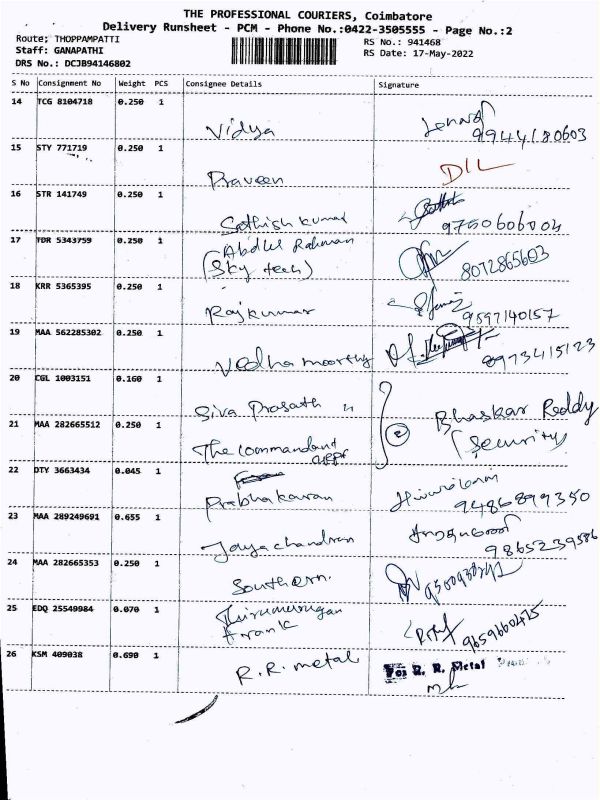 THE PROFESSIONAL COURIERS, Coimbatore
Delivery Runsheet - PCM - Phone No.:0422-3505555 - Page No.:2
Route; THOPPAMPATTI
RS No.: 941468
Staff: GANAPATHI
RS Date: 17-May-2022
DRS No.: DCJB94146802
S No Consignment No Weight PCS Consignee Details Signature
14 TCG 8104718 0.250 1
Vidya 9944180603
15 STY 771719 0.250 1
Praveen D/L
16 STR 141749 0.250 1
Sathish kumar 9750606004
17 TDR 5343759 0.250 1
Abdul Rahman
(Sky tech) 8072865603
18 KRR 5365395 0.250 1
Rajkumar 9597140157
19 MAA 562285302 0.250 1
Vedha moorthy 8973415123
20 CGL 1003151 0.160 1
Siva Prasath "
Bhaskar Reddy
21 MAA 282665512 0.250 1
The commandant
(2) (Security)
22 DTY 3663434 0.045 1
Prabhakaran 9486899350
23 MAA 289249691 0.655 1
Jayachandran 9865239586
24 MAA 282665353 0.250 1
Southern.
25 EDQ 25549984 0.070 1
Thirumurugan
9659660425
26 KSM 409038 0.690 1
R.R. metal For R. R. Metal